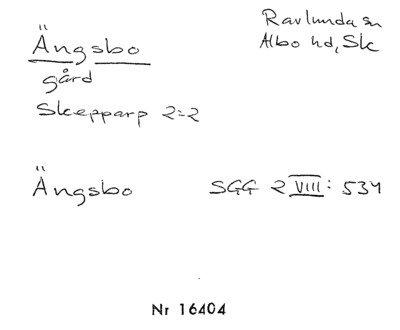 Ängsbo
Ravlunda sn
Albo hd, Sk
gård
Skepparp 2=2
Ängsbo SGG 2 VIII: 534
Nr 16404